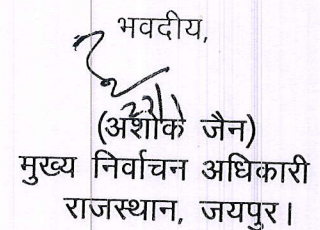 भवदीय,
(अशोक जैन)
मुख्य निर्वाचन अधिकारी
राजस्थान, जयपुर।